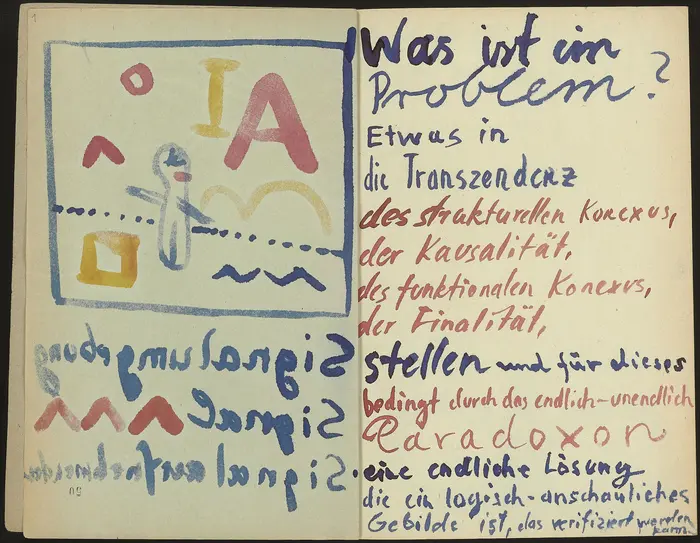 I A
Signalumgebung
Signal
Was ist ein
Problem?
Etwas in
die Transzendenz
des strukturellen Konexus,
der Kausalität,
des funktionalen Konexus,
der Finalität,
stellen und für dieses
bedingt durch das endlich-unendlich
Paradoxon
eine endliche Lösung
die ein logisch-anschauliches
Gebilde ist, das verifiziert werden
kann.